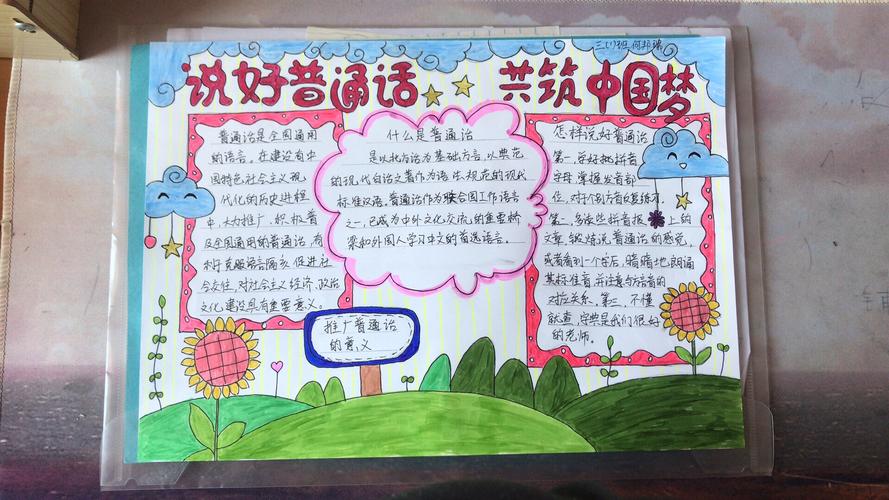 三(1)班 何邦瑞
说好普通话 共筑中国梦
普通话是全国通用
的语言。在建设有中
国特色社会主义现
代化的历史进程
中，大力推广、积极普
及全国通用的普通话，有
利于克服语言隔亥，促进社
会交往，对社会主义经济、政治
文化建设具有重要意义。
什么是普通话
是以北方话为基础方言，以典范
的现代白话文著作为语法规范的现代
标准汉语。普通话作为联合国工作语言
之一，已成为中外文化交流的重要桥
梁和外国人学习中文的首选语言。
推广普通话
的意义
怎样说好普通话
第一，学好地拼音
字母，掌握发音部
位，对于个别方音反复练习。
第二，多读些拼音报 上的
文章，锻炼说普通话的感觉，
或者看到一个字后，暗暗地朗诵
其标准音，并注意与方言音的
对应关系。第三，不懂
就查，字典是我们很好
的老师。